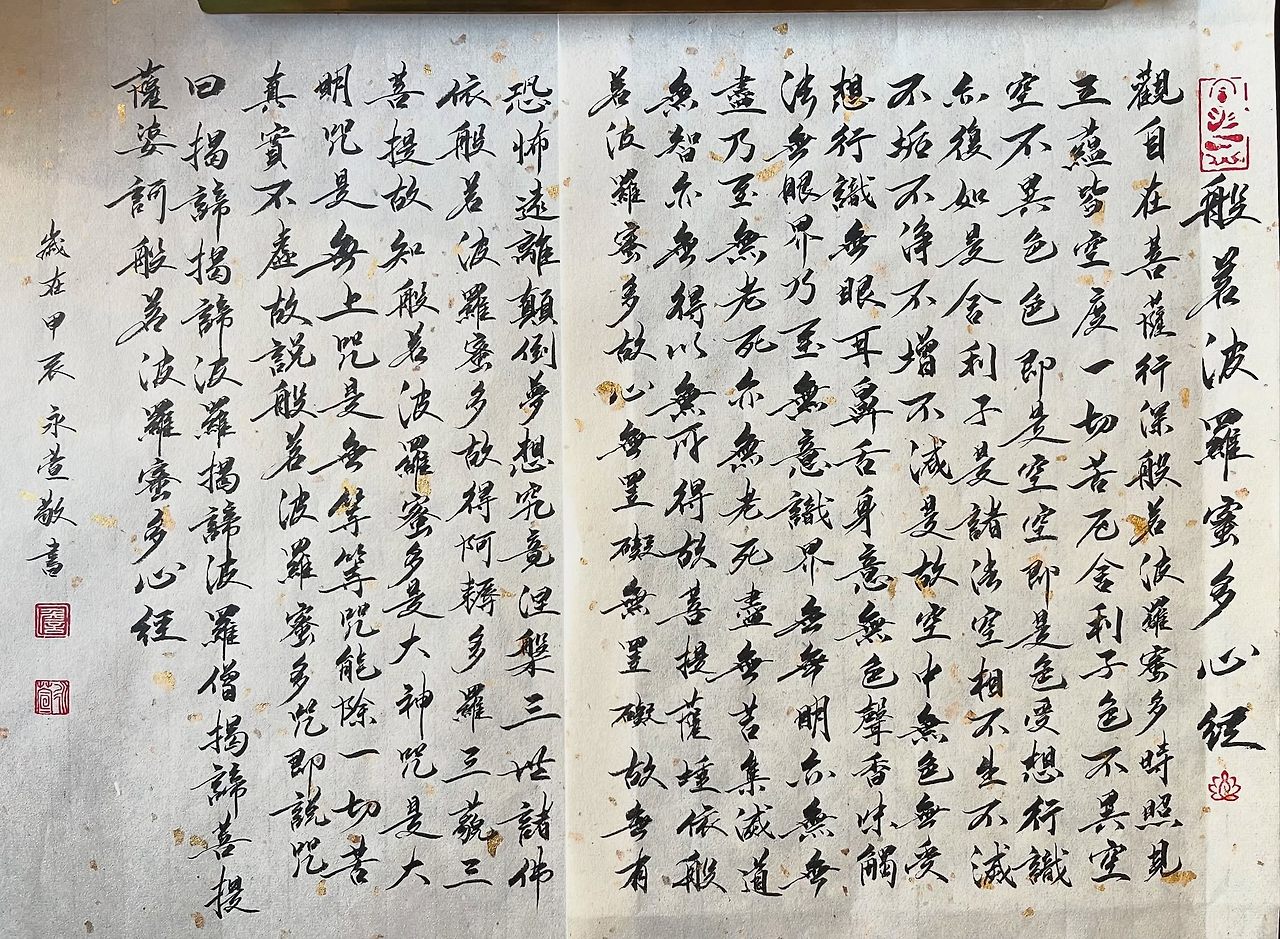 般若波羅蜜多心經
觀自在菩薩行深般若波羅蜜多時照見
五蘊皆空度一切苦厄舍利子色不異空
空不異色色即是空空即是色受想行識
亦復如是舍利子是諸法空相不生不滅
不垢不淨不增不減是故空中無色無受
想行識無眼耳鼻舌身意無色聲香味觸
法無眼界乃至無意識界無無明亦無無
盡乃至無老死亦無老死盡無苦集滅道
無智亦無得以無所得故菩提薩埵依般
若波羅蜜多故心無罣礙無罣礙故無有
恐怖遠離顛倒夢想究竟涅槃三世諸佛
依般若波羅蜜多故得阿耨多羅三藐三
菩提故知般若波羅蜜多是大神咒是大
明咒是無上咒是無等等咒能除一切苦
真實不虛故說般若波羅蜜多咒即說咒
曰揭諦揭諦波羅揭諦波羅僧揭諦菩提
薩婆訶般若波羅蜜多心經
歲在甲辰 永萱敬書